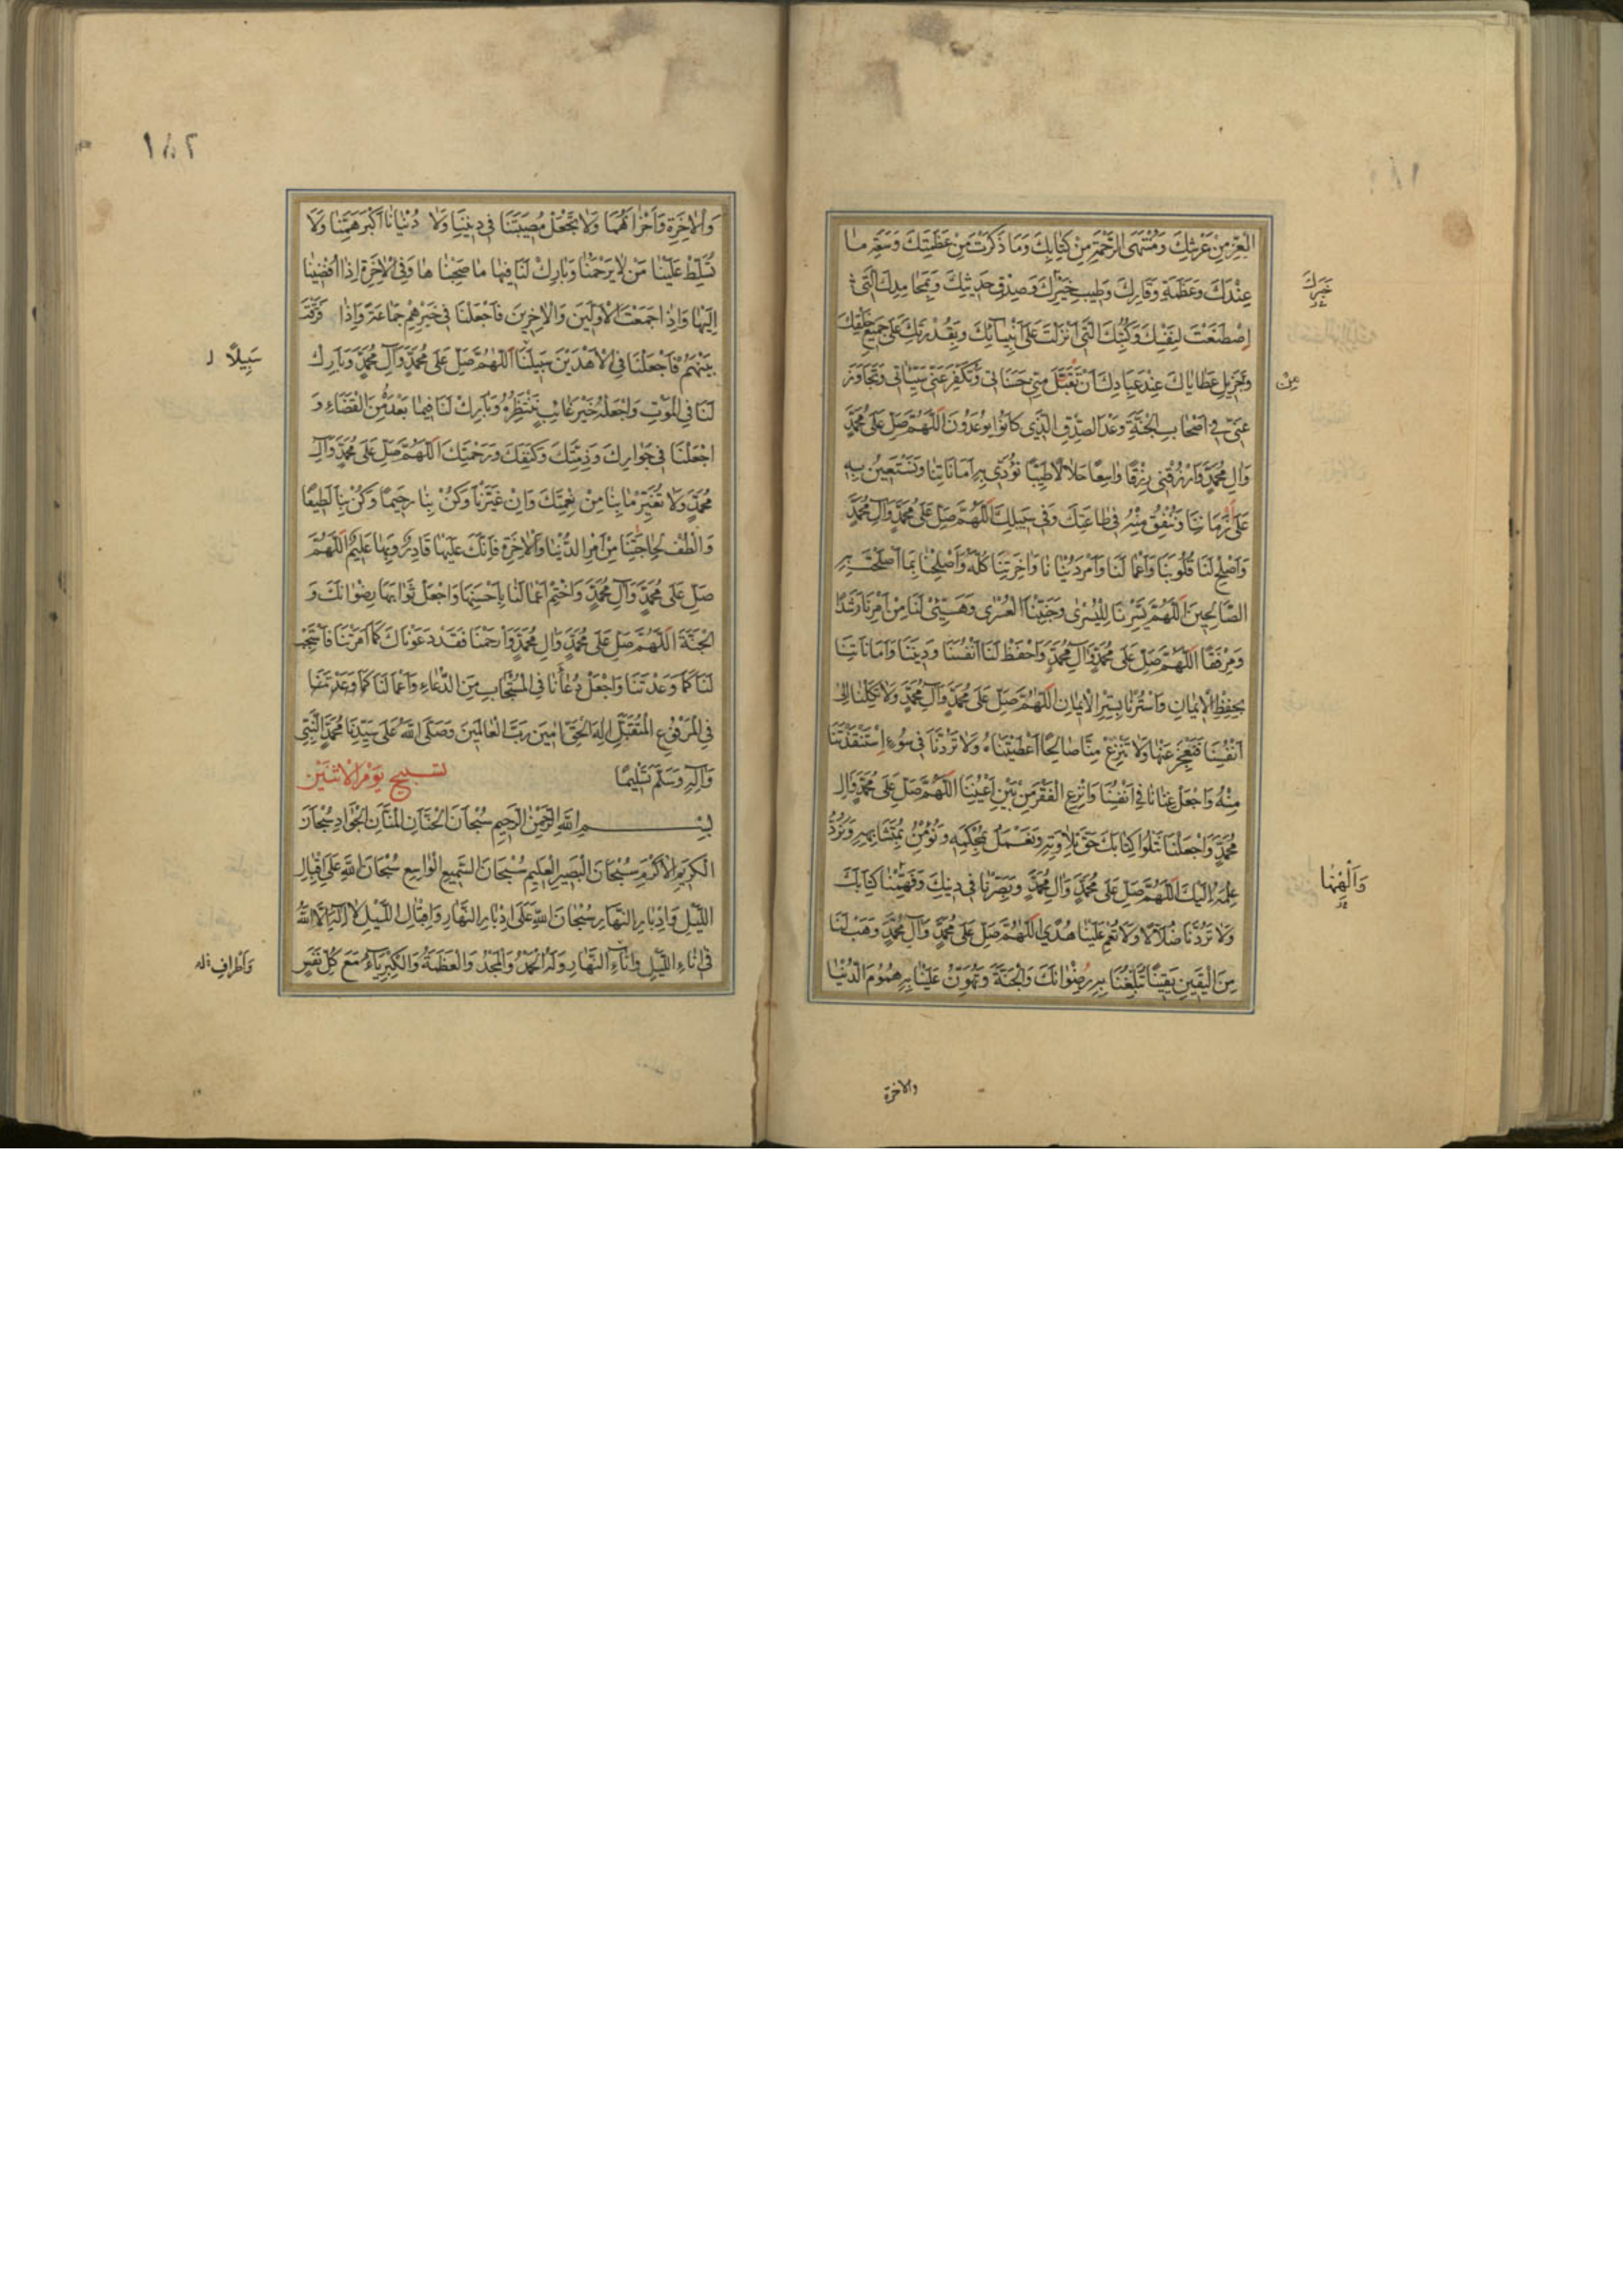 ١٨١
العز من عرشك ومنتهى الرحمة من كتابك وما ذكرت من عظمتك وسعة ما
عندك وعظمة وقارك وطيب خيرك وصدق حديثك وبمحامدك التي
خيرك
اصطنعت لنفسك وكتبك التي انزلت على انبيائك وبقدرتك على جميع خلقك
وبجزيل عطاياك عند عبادك ان تقبل مني حسناتي وتكفر عني سيئاتي وتجاوز
من
عني في اصحاب الجنة وعد الصدق الذي كانوا يوعدون اللهم صل على محمد
وال محمد وارزقني رزقا واسعا حلالا طيبا نؤدي به اماناتنا ونستعين به
على زماننا وننفق منه في طاعتك وفي سبيلك اللهم صل على محمد وال محمد
واصلح لنا قلوبنا واعمالنا وامر دنيانا واخرتنا كله واصلحنا بما اصلحت به
الصالحين اللهم يسرنا لليسرى وجنبنا العسرى وهيئ لنا من امرنا رشدا
ومرفقا اللهم صل على محمد وال محمد واحفظ لنا انفسنا وديننا واماناتنا
بحفظ الايمان واسترنا بستر الايمان اللهم صل على محمد وال محمد ولا تكلنا الى
انفسنا فنعجز عنها ولا تنزع منا صالحا اعطيتناه ولا تردنا في سوء استنقذتنا
منه واجعل غنانا في انفسنا وانزع الفقر من بين اعيننا اللهم صل على محمد وال
محمد واجعلنا نتلوا كتابك حق تلاوته ونعمل بمحكمه ونؤمن بمتشابهه ونرد
علمه اليك اللهم صل على محمد وال محمد وبصرنا في دينك وفهمنا كتابك
والهمنا
ولا تردنا ضلالا ولا تعم علينا هدي اللهم صل على محمد وال محمد وهب لنا
من اليقين يقينا تبلغنا به رضوانك والجنة وتهون علينا به هموم الدنيا
والاخرة
١٨٢
والاخرة واحزانهما ولا تجعل مصيبتنا في ديننا ولا دنيانا اكبر همنا ولا
تسلط علينا من لا يرحمنا وبارك لنا فيها ما صحبناها وفي الاخرة اذا افضينا
اليها واذا جمعت الاولين والاخرين فاجعلنا في خيرهم جماعة واذا فرقت
بينهم فاجعلنا في الاهدين سبيلنا اللهم صل على محمد وال محمد وبارك
سبيلا
لنا في الموت واجعله خير غائب ننتظره وبارك لنا فيما بعده من القضاء و
اجعلنا في جوارك وذمتك وكنفك ورحمتك اللهم صل على محمد وال
محمد ولا تغير ما بنا من نعمتك وان غيرنا وكن بنا رحيما وكن بنا لطيفا
والطف لحاجتنا من امر الدنيا والاخرة فانك عليها قادر وبها عليم اللهم
صل على محمد وال محمد واختم اعمالنا باحسنها واجعل ثوابها رضوانك و
الجنة اللهم صل على محمد وال محمد وارحمنا فقد دعوناك كما امرتنا فاستجب
لنا كما وعدتنا واجعل دعائنا في المستجاب من الدعاء واعمالنا كما وعدتنا
في المرفوع المتقبل اله الحق امين رب العالمين وصلى الله على سيدنا محمد النبي
واله وسلم تسليما تسبيح يوم الاثنين
بسم الله الرحمن الرحيم سبحان الحنان المنان الجواد سبحان
الكريم الاكرم سبحان البصير العليم سبحان السميع الواسع سبحان الله على اقبال
الليل وادبار النهار سبحان الله على ادبار النهار واقبال الليل لا اله الا الله
في اناء الليل واناء النهار وله الحمد والمجد والعظمة والكبرياء مع كل نفس
واطراف